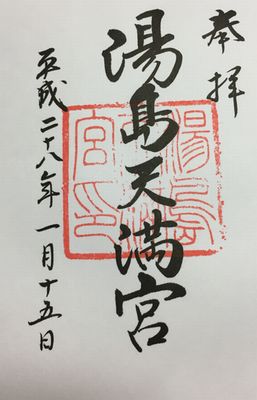 奉拝
湯島天満宮
平成二十八年一月十五日